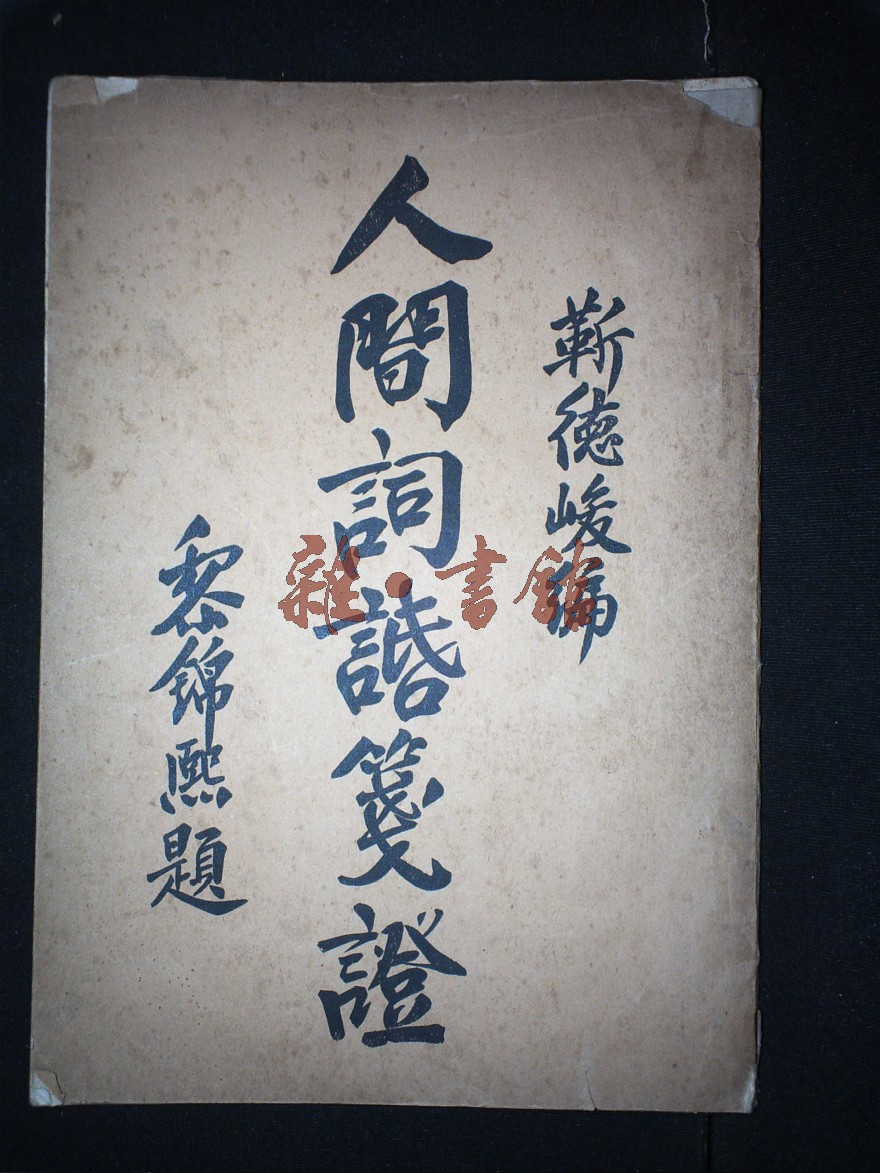 靳徳峻編
人間詞諙箋證
黎錦熙題
雜·書館